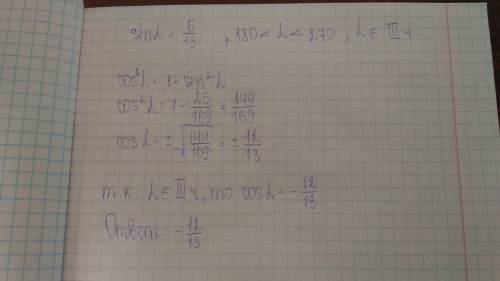 sinα = 5/13 , 180 < α < 270 , α ∈ III ч.
cos²α = 1 - sin²α
cos²α = 1 - 25/169 = 144/169
cosα = ± √(144/169) = ± 12/13
т.к. α ∈ III ч, то cosα = - 12/13
Ответ - 12/13